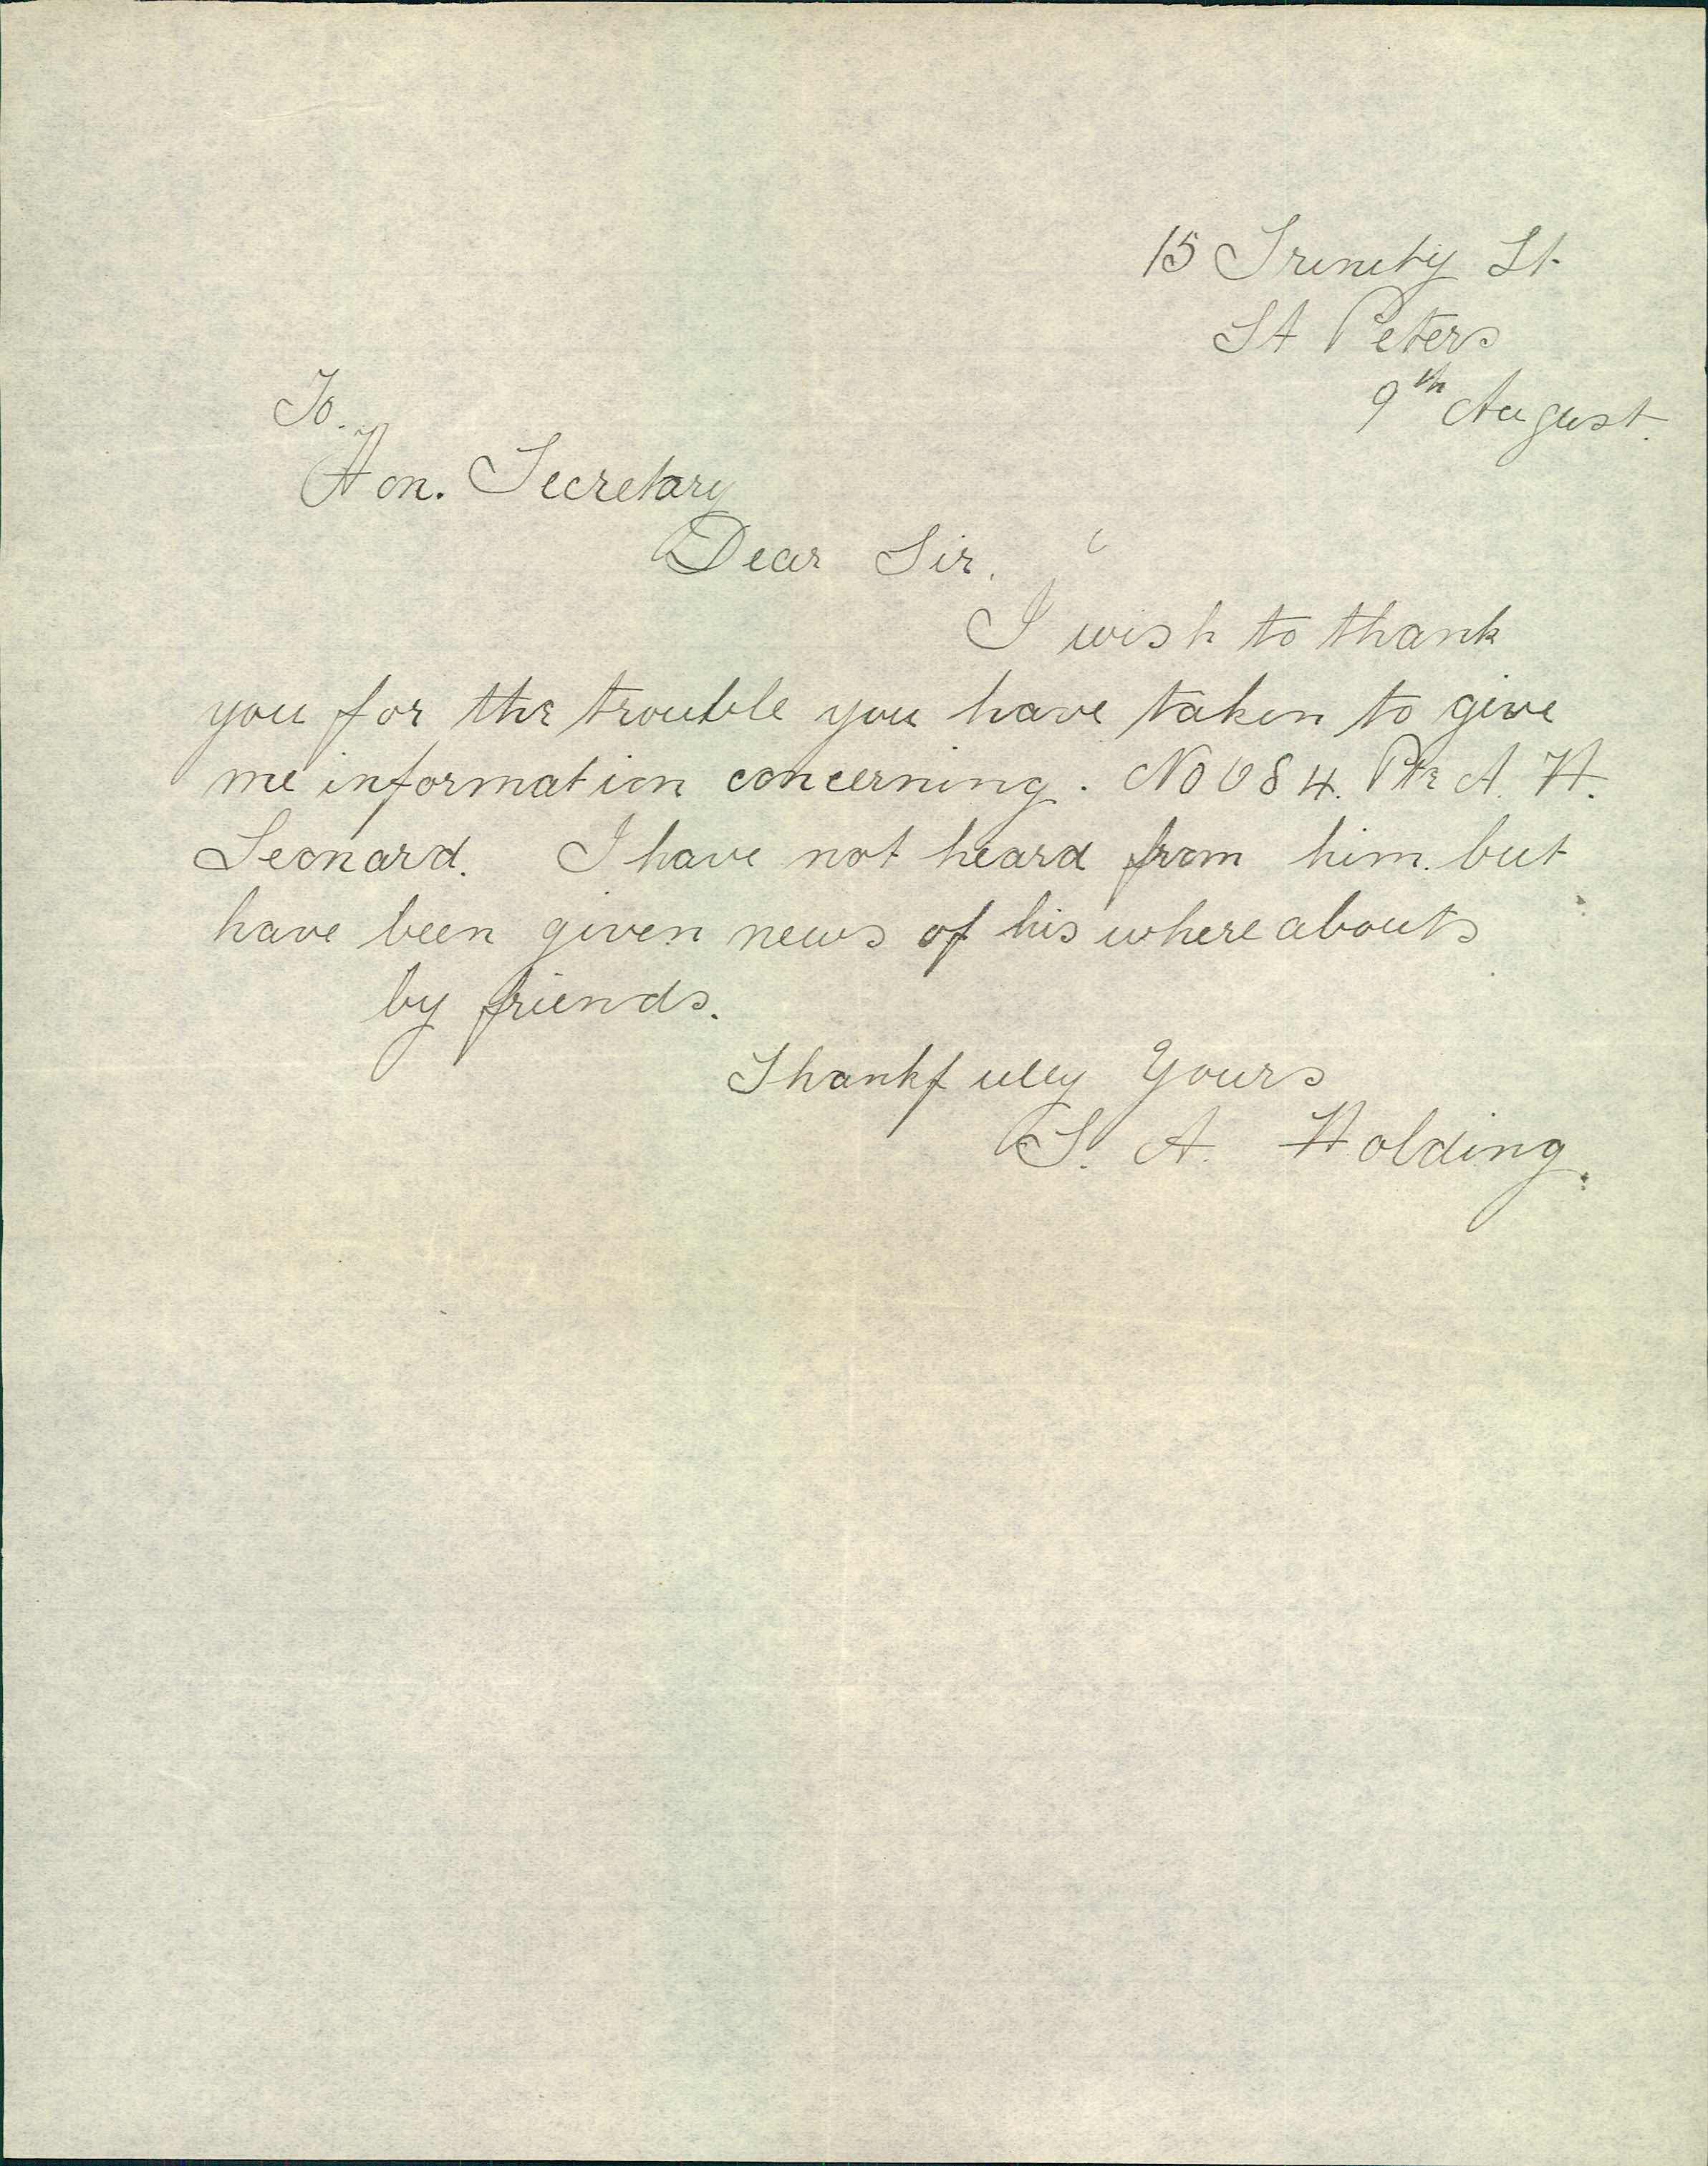 15 Trinity St.
St Peters
9th August.
To.
Hon. Secretary
Dear Sir.
I wish to thank
you for the trouble you have taken to give
me information concerning. No 684. Pte A. H.
Leonard. I have not heard from him. but
have been given news of his where abouts
by friends.
Thankfully Yours
S. A. Holding.